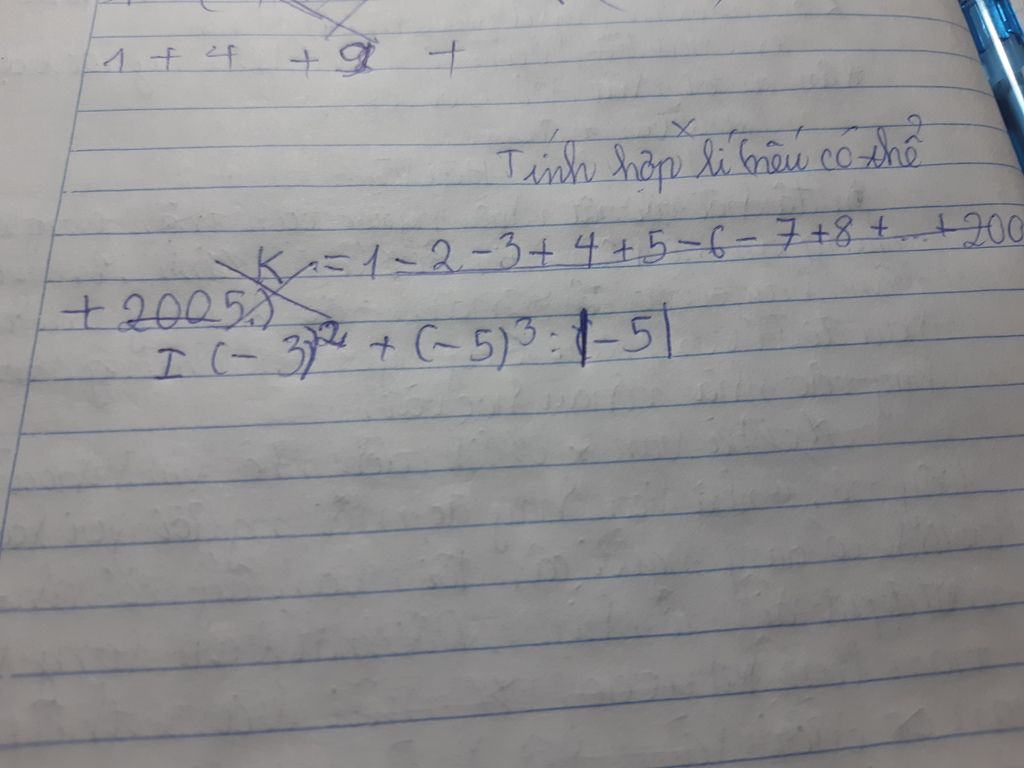 1 + 4 + 9 +
Tính hợp lí nếu có thể
K = 1 - 2 - 3 + 4 + 5 - 6 - 7 + 8 + ... + 200
+ 2005.)
I (- 3)² + (- 5)³ : |- 5|